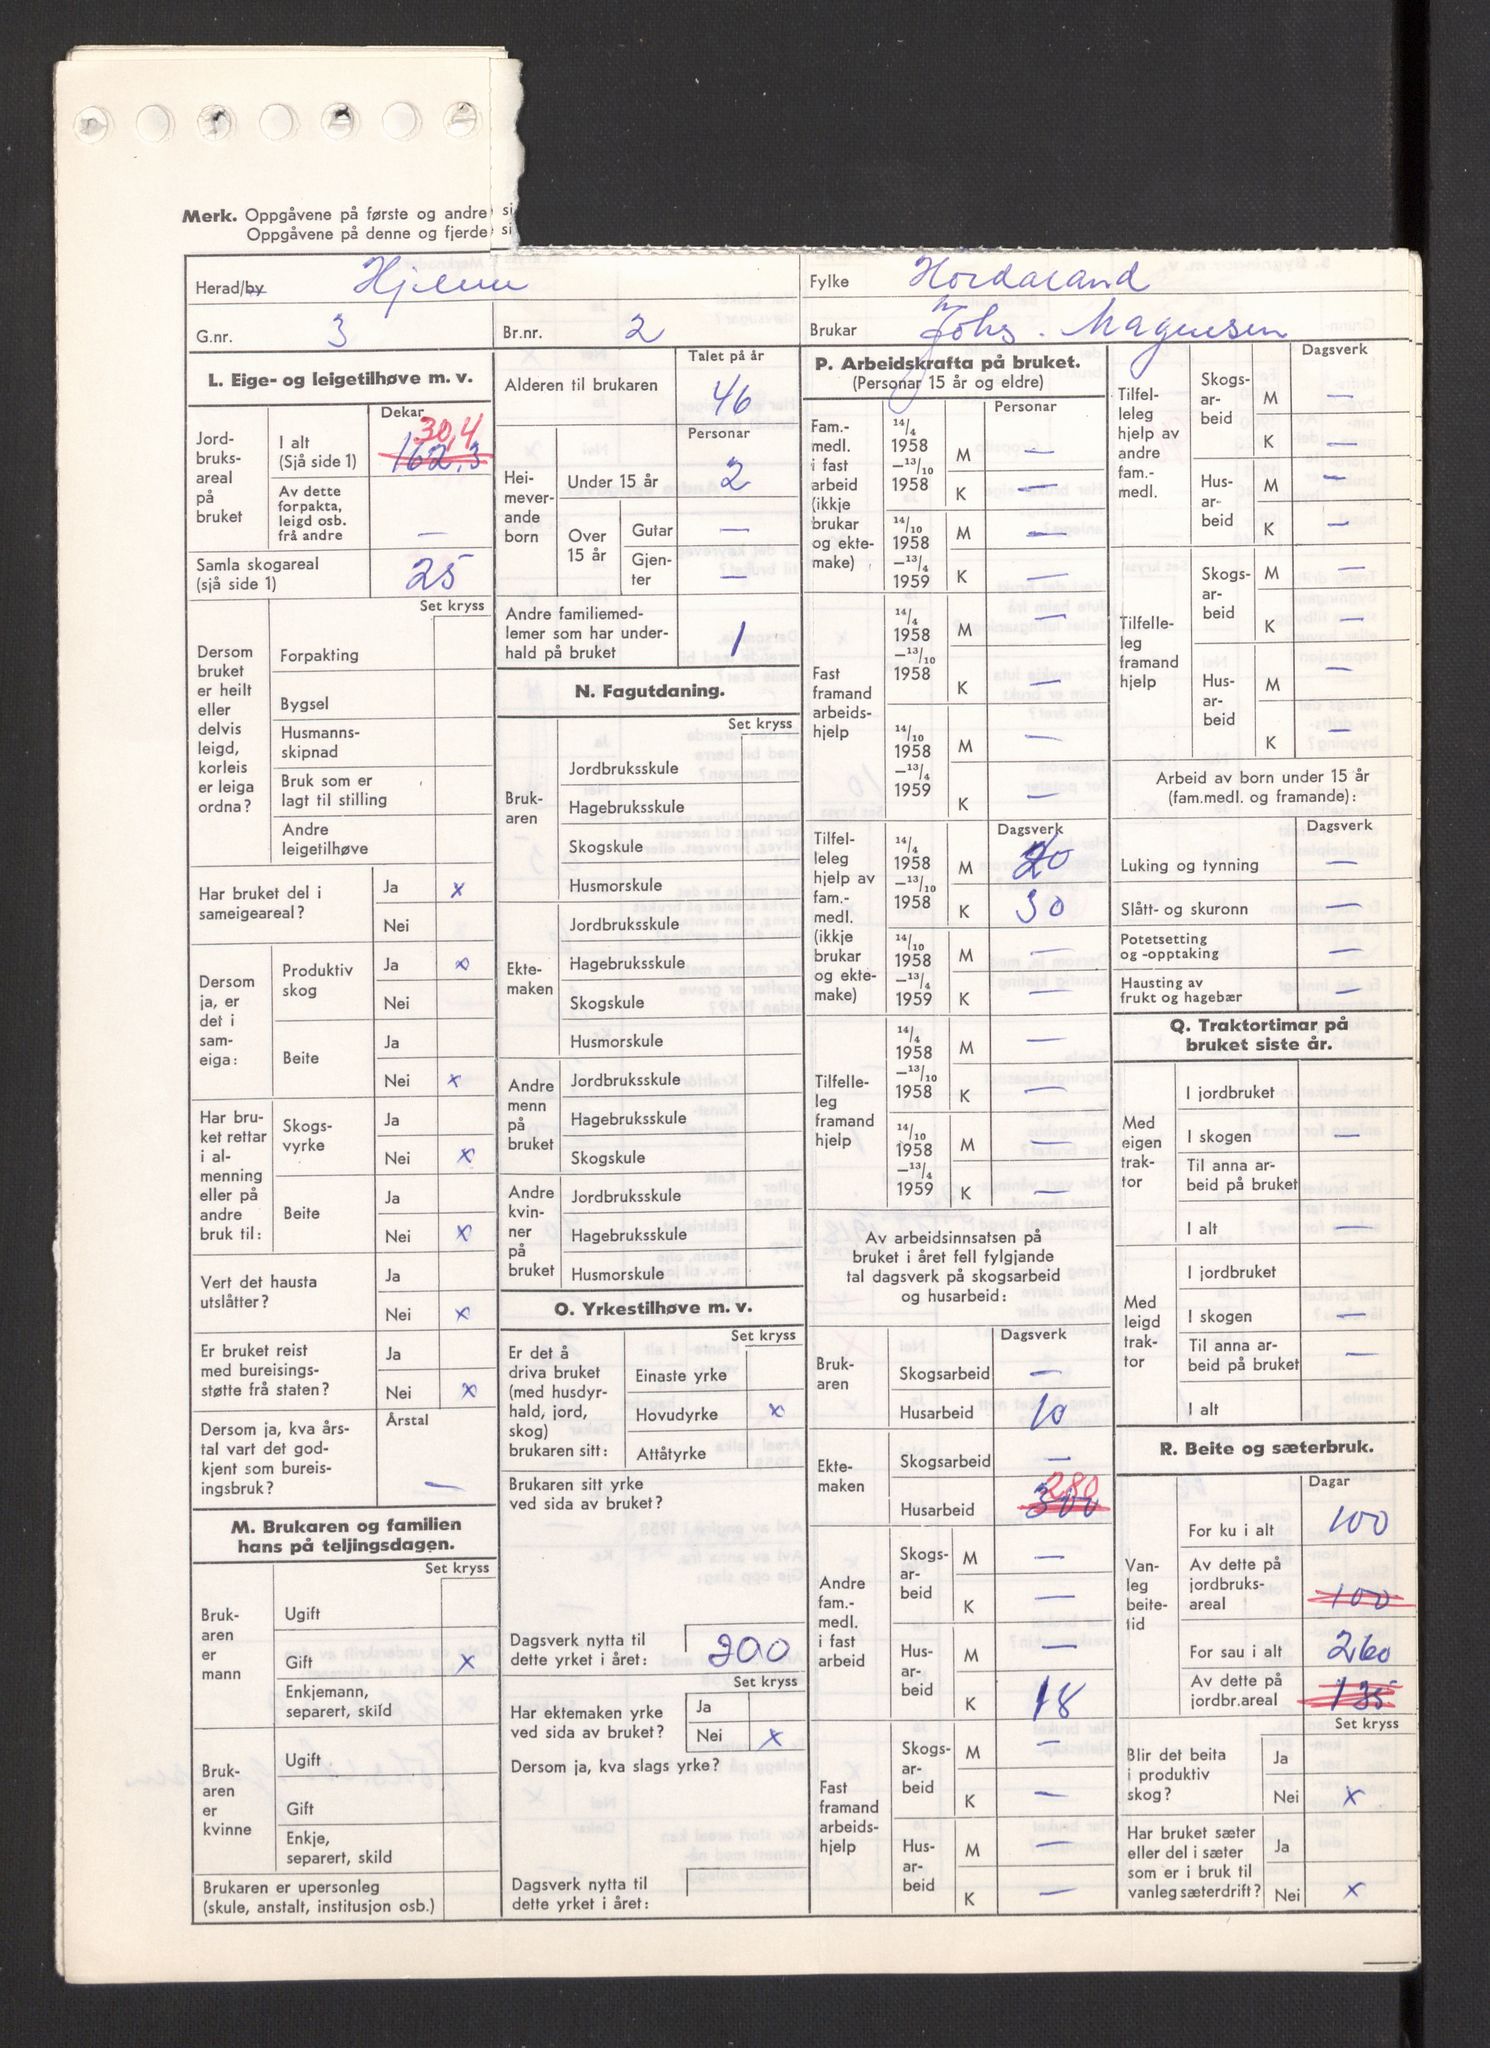 Merk. Oppgåvene på første og andre si
Oppgåvene på denne og fjerde si
Herad/by Hjelme
Fylke Hordaland
G.nr. 3
Br.nr. 2
Brukar Johs. Magnusen
L. Eige- og leigetilhøve m. v.
Dekar
Jord-
bruks-
areal
på
bruket
I alt
(Sjå side 1)
30,4
162,3
Av dette
forpakta,
leigd osb.
frå andre
—
Samla skogareal
(sjå side 1)
25
Set kryss
Dersom
bruket
er heilt
eller
delvis
leigd,
korleis
er leiga
ordna?
Forpakting
Bygsel
Husmanns-
skipnad
Bruk som er
lagt til stilling
Andre
leigetilhøve
Har bruket del i
sameigeareal?
Ja x
Nei
Dersom
ja, er
det i
sam-
eiga:
Produktiv
skog
Ja x
Nei
Beite
Ja
Nei x
Har bru-
ket rettar
i al-
menning
eller på
andre
bruk til:
Skogs-
vyrke
Ja
Nei x
Beite
Ja
Nei x
Vert det hausta
utslåtter?
Ja
Nei x
Er bruket reist
med bureisings-
støtte frå staten?
Ja
Nei x
Dersom ja, kva års-
tal vart det god-
kjent som bureis-
ingsbruk?
Årstal
—
M. Brukaren og familien
hans på teljingsdagen.
Set kryss
Bruk-
aren
er
mann
Ugift
Gift x
Enkjemann,
separert, skild
Bruk-
aren
er
kvinne
Ugift
Gift
Enkje,
separert, skild
Brukaren er upersonleg
(skule, anstalt, institusjon osb.)
Talet på år
Alderen til brukaren 46
Personar
Hei-
mever-
ande
born
Under 15 år 2
Over
15 år
Gutar —
Gjen-
ter —
Andre familiemed-
lemer som har under-
hald på bruket 1
N. Fagutdaning.
Set kryss
Bruk-
aren
Jordbruksskule
Hagebruksskule
Skogskule
Husmorskule
Ekte-
maken
Jordbruksskule
Hagebruksskule
Skogskule
Husmorskule
Andre
menn
på
bruket
Jordbruksskule
Hagebruksskule
Skogskule
Andre
kvin-
ner
på
bruket
Jordbruksskule
Hagebruksskule
Husmorskule
O. Yrkestilhøve m. v.
Set kryss
Er det å
driva bruket
(med husdyr-
hald, jord,
skog)
brukaren sitt:
Einaste yrke
Hovudyrke x
Attåtyrke
Brukaren sitt yrke
ved sida av bruket?
Dagsverk nytta til
dette yrket i året: 200
Set kryss
Har ektemaken yrke
ved sida av bruket?
Ja
Nei x
Dersom ja, kva slags yrke?
Dagsverk nytta til
dette yrket i året:
P. Arbeidskrafta på bruket.
(Personar 15 år og eldre)
Personar
Fam.-
medl.
i fast
arbeid
(ikkje
brukar
og ekte-
make)
14/4
1958
—13/10
1958
M —
K —
14/10
1958
—13/4
1959
M —
K —
Fast
framand
arbeids-
hjelp
14/4
1958
—13/10
1958
M —
K —
14/10
1958
—13/4
1959
M —
K —
Dagsverk
Tilfel-
leleg
hjelp av
fam.-
medl.
(ikkje
brukar
og ekte-
make)
14/4
1958
—13/10
1958
M 20
K 30
14/10
1958
—13/4
1959
M —
K —
Tilfelle-
leg
framand
hjelp
14/4
1958
—13/10
1958
M —
K —
14/10
1958
—13/4
1959
M —
K —
Av arbeidsinnsatsen på
bruket i året fell fylgjande
tal dagsverk på skogsarbeid
og husarbeid:
Dagsverk
Bruk-
aren
Skogsarbeid —
Husarbeid 10
Ekte-
maken
Skogsarbeid —
Husarbeid 280
300
Andre
fam.-
medl.
i fast
arbeid
Skogs-
ar-
beid
M —
K —
Hus-
ar-
beid
M —
K 18
Fast
framand
arbeids-
hjelp
Skogs-
ar-
beid
M —
K —
Hus-
ar-
beid
M —
K —
Dagsverk
Tilfel-
leleg
hjelp av
andre
fam.-
medl.
Skogs-
ar-
beid
M —
K —
Hus-
ar-
beid
M —
K —
Tilfelle-
leg
framand
hjelp
Skogs-
ar-
beid
M —
K —
Hus-
ar-
beid
M —
K —
Arbeid av born under 15 år
(fam.medl. og framande):
Dagsverk
Luking og tynning —
Slått- og skuronn —
Potetsetting
og -opptaking —
Hausting av
frukt og hagebær —
Q. Traktortimar på
bruket siste år.
Med
eigen
trak-
tor
I jordbruket
I skogen —
Til anna ar-
beid på bruket —
I alt —
Med
leigd
trak-
tor
I jordbruket
I skogen —
Til anna ar-
beid på bruket —
I alt
R. Beite og sæterbruk.
Dagar
Van-
leg
beite-
tid
For ku i alt 100
Av dette på
jordbruks-
areal 100
For sau i alt 260
Av dette på
jordbr.areal 135
Set kryss
Blir det beita
i produktiv
skog?
Ja
Nei x
Har bruket sæter
eller del i sæter
som er i bruk til
vanleg sæterdrift?
Ja
Nei x